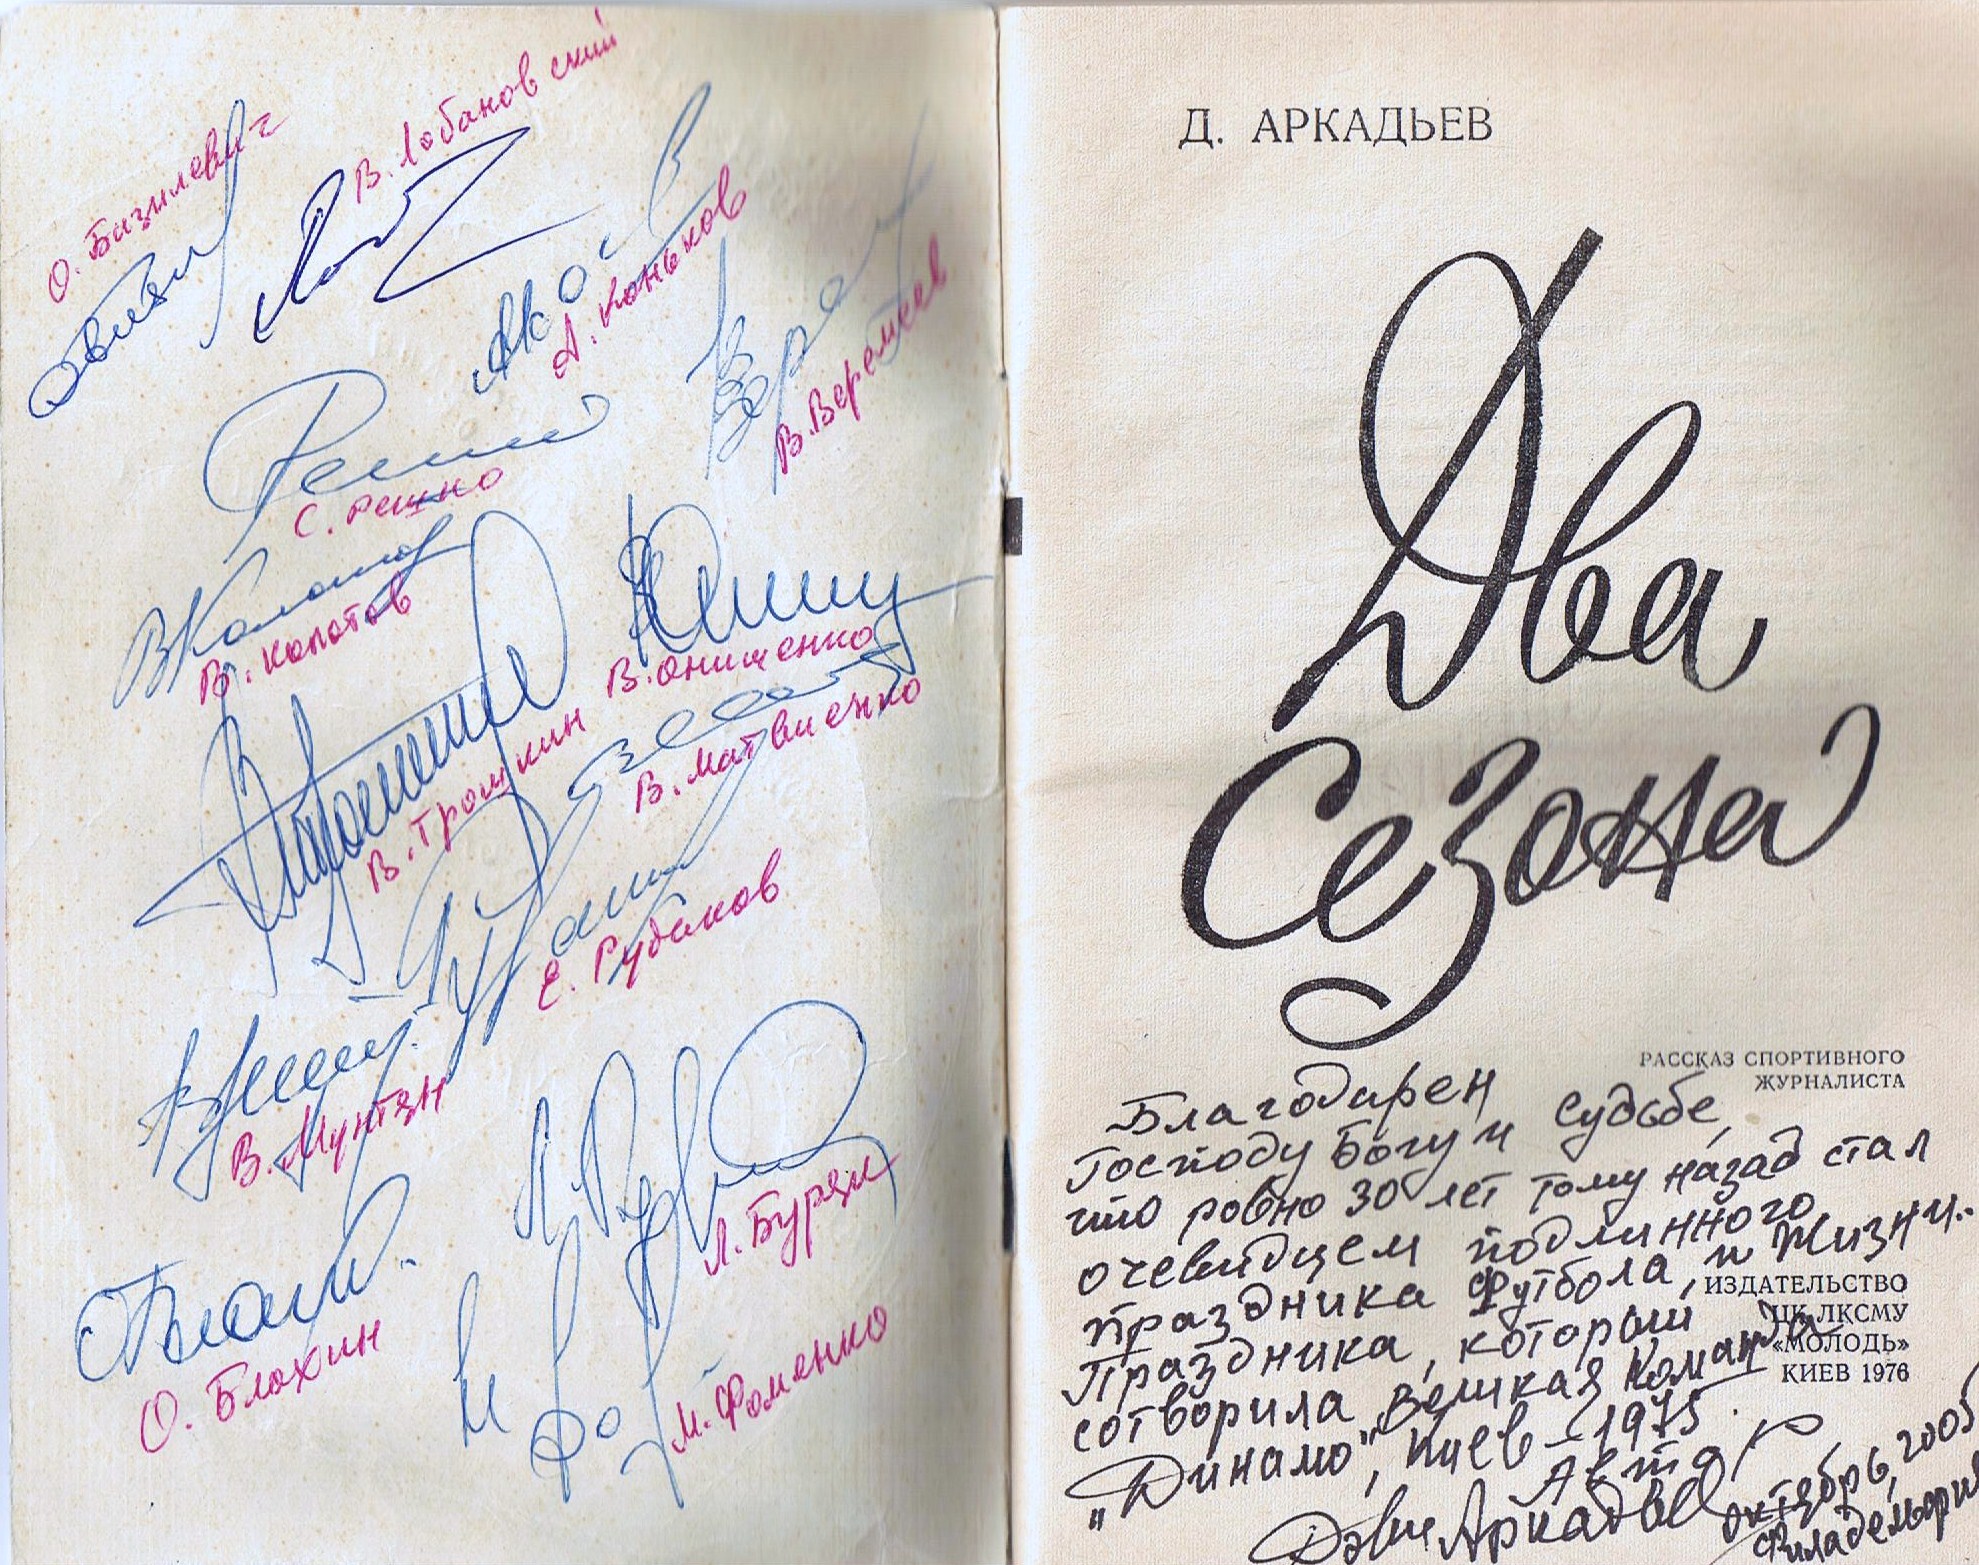 О. Базилевич
В. Лобановский
А. Коньков
В. Веремеев
С. Решко
В. Колотов
В. Онищенко
В. Трошкин
В. Матвиенко
Е. Рудаков
В. Мунтян
Л. Буряк
О. Блохин
М. Фоменко
Д. АРКАДЬЕВ
Два
Сезона
РАССКАЗ СПОРТИВНОГО
ЖУРНАЛИСТА
Благодарен
Господу Богу и Судьбе,
что ровно 30 лет тому назад стал
очевидцем подлинного
праздника Футбола, и Жизни..
Праздника, который
сотворила великая Команда
"Динамо", Киев – 1975.
Автор
Дэви Аркадьев
Октябрь, 2005
Филадельфия
ИЗДАТЕЛЬСТВО
ЦК ЛКСМУ
«МОЛОДЬ»
КИЕВ 1976